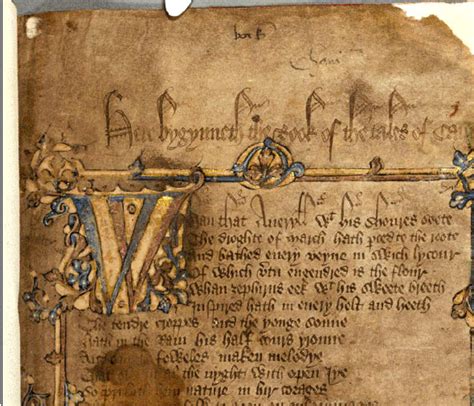 Here bygynneth the Book of the tales of
Whan that Aueryll wt his shoures soote
The droghte of March hath perced to the roote
And bathed euery veyne in swich lycour
Of which vtu engendred is the flour
Whan zephirus eek wt his sweete breeth
Inspired hath in euery holt and heeth
The tendre croppes and the yonge sonne
Hath in the Ram his half cours yronne
foweles maken melodye
al the nyght with open Iye
So priketh hem nature in hir corages